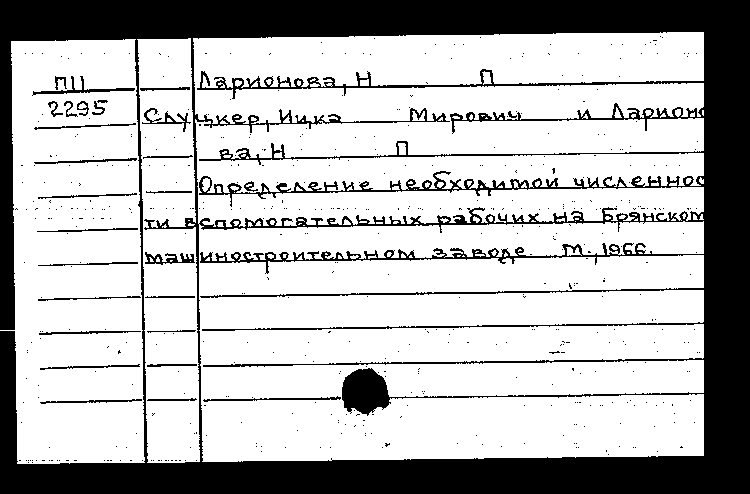 ПII Ларионова, Н П
2295 Слуцкер, Ицка Мирович и Ларионо
ва, Н П
Определение необходимой численнос
ти вспомогательных рабочих на Брянском
машиностроительном заводе. М., 1966.